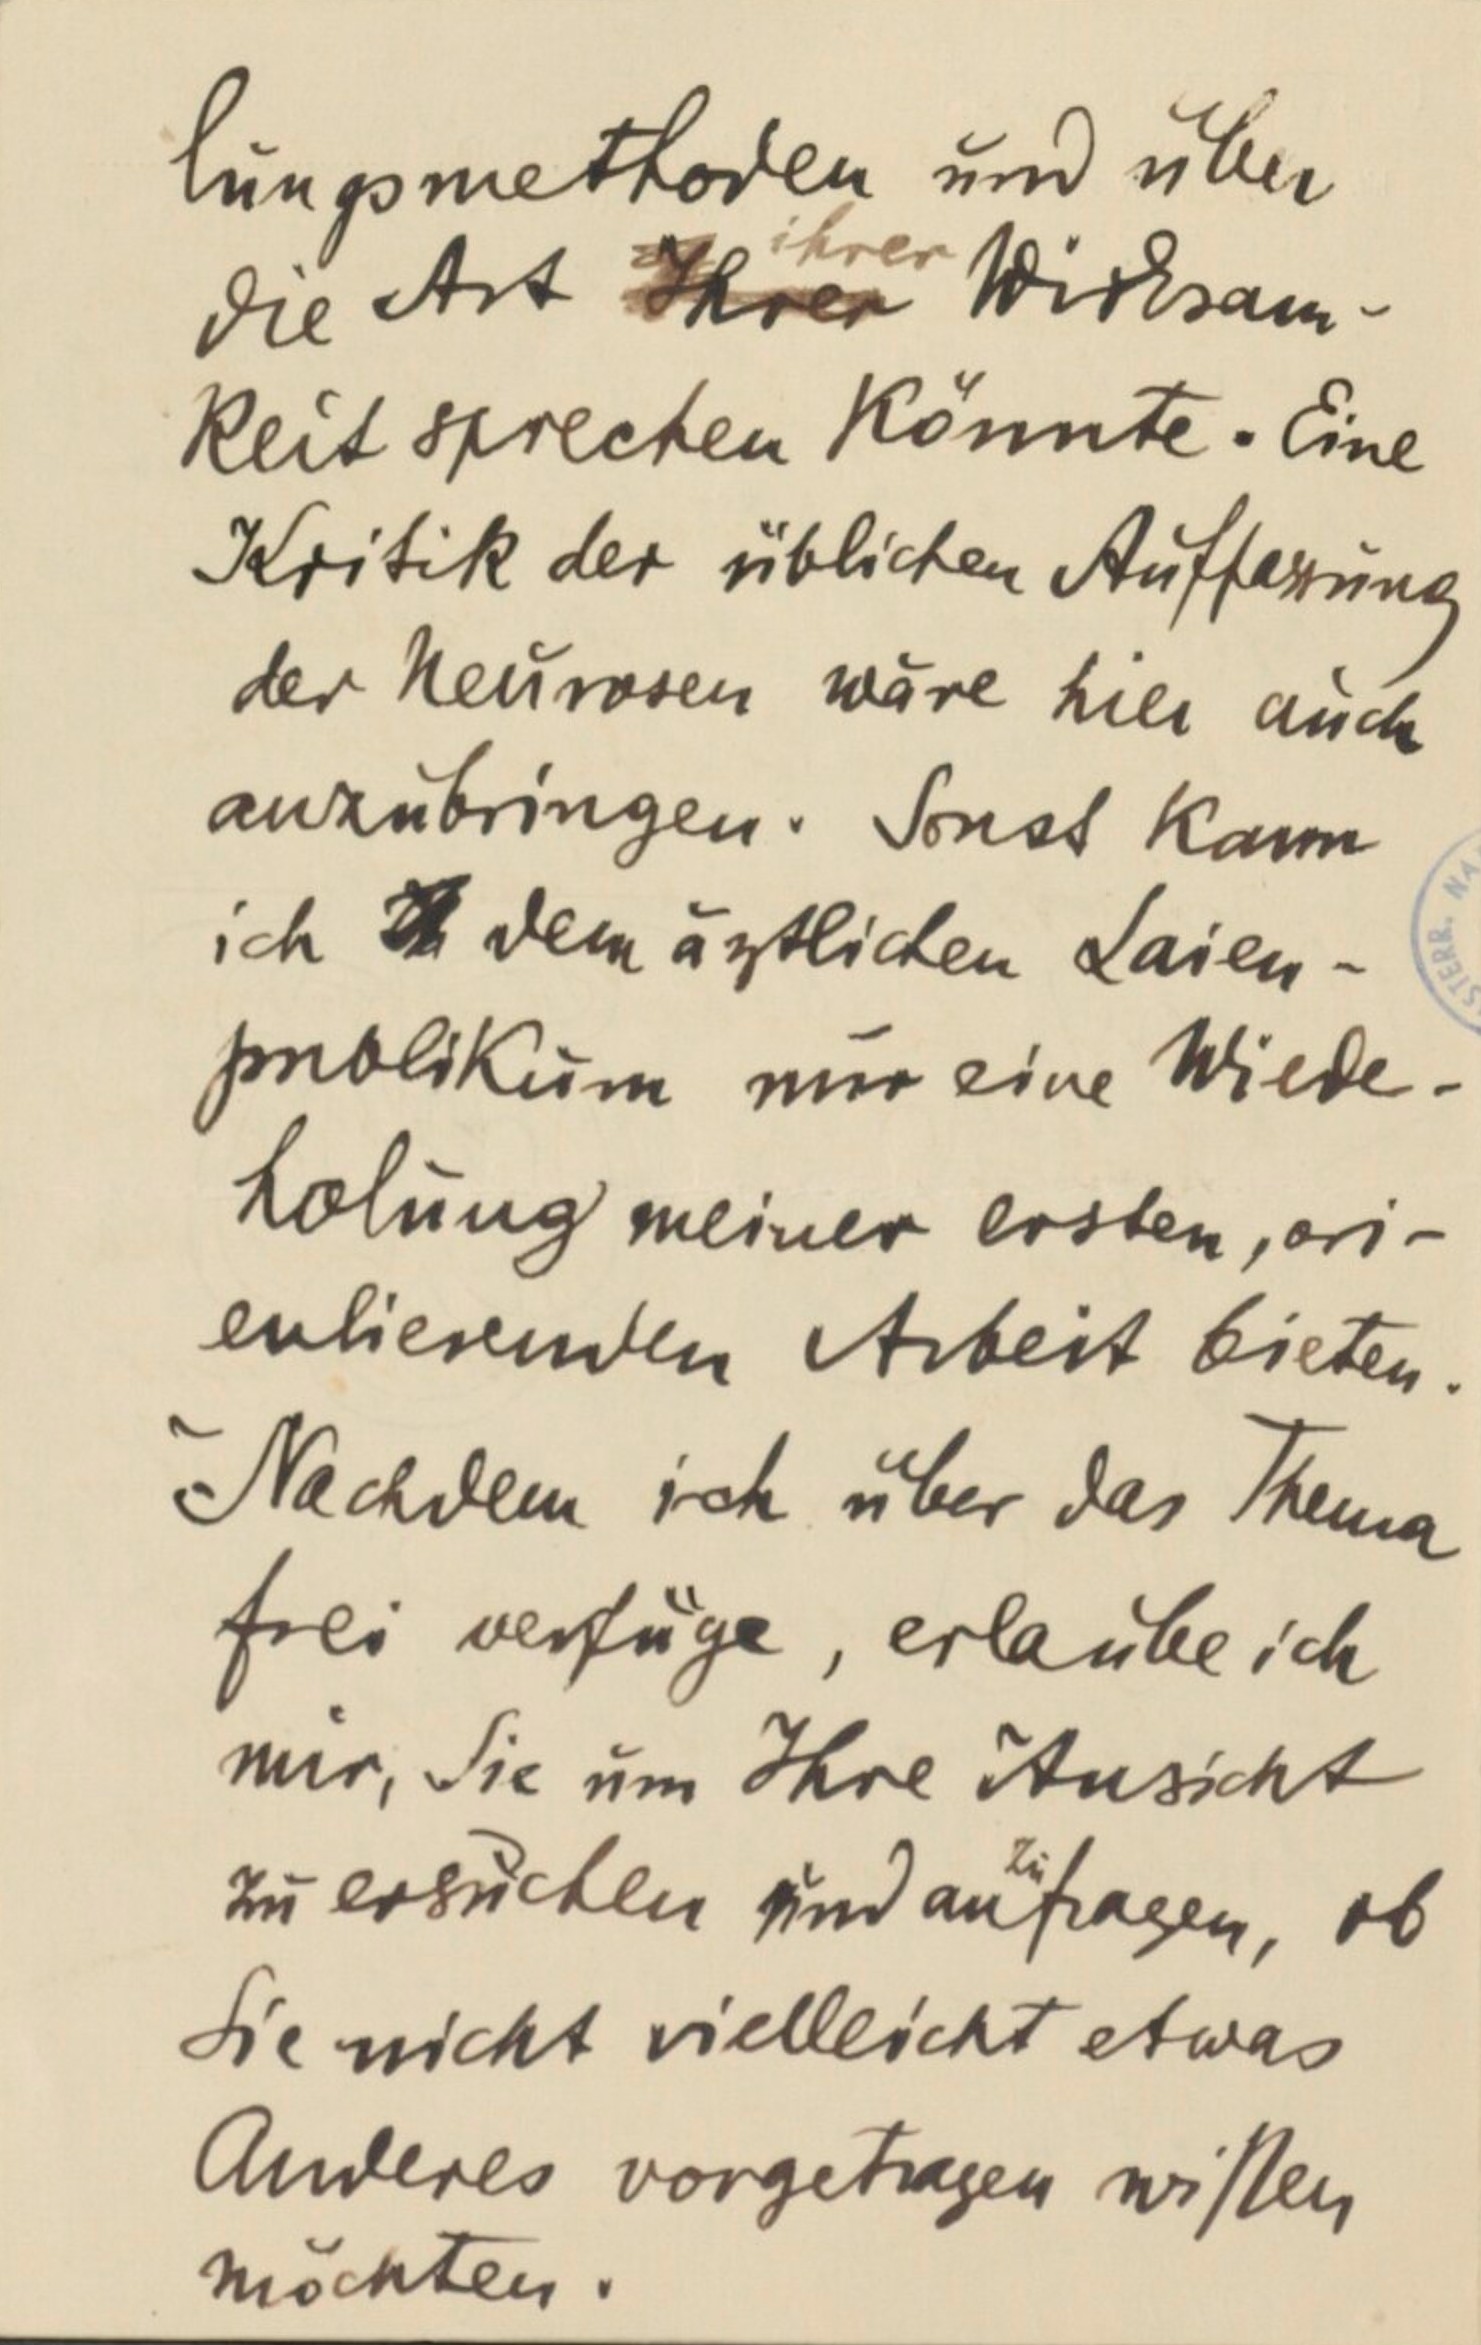 lungsmethoden und über
die Art Ihrer ihrer Wirksam-
keit sprechen könnte. Eine
Kritik der üblichen Auffassung
der Neurosen wäre hier auch
anzubringen. Sonst kann
ich dem äztlichen Laien-
publikum nur eine Wiede-
holung meiner ersten, ori-
entierenden Arbeit bieten.
- Nachdem ich über das Thema
frei verfüge, erlaube ich
mir, Sie um Ihre Ansicht
zu ersuchen und anzufragen, ob
Sie nicht vielleicht etwas
Anderes vorgetragen wissen
möchten.
STERR. NA